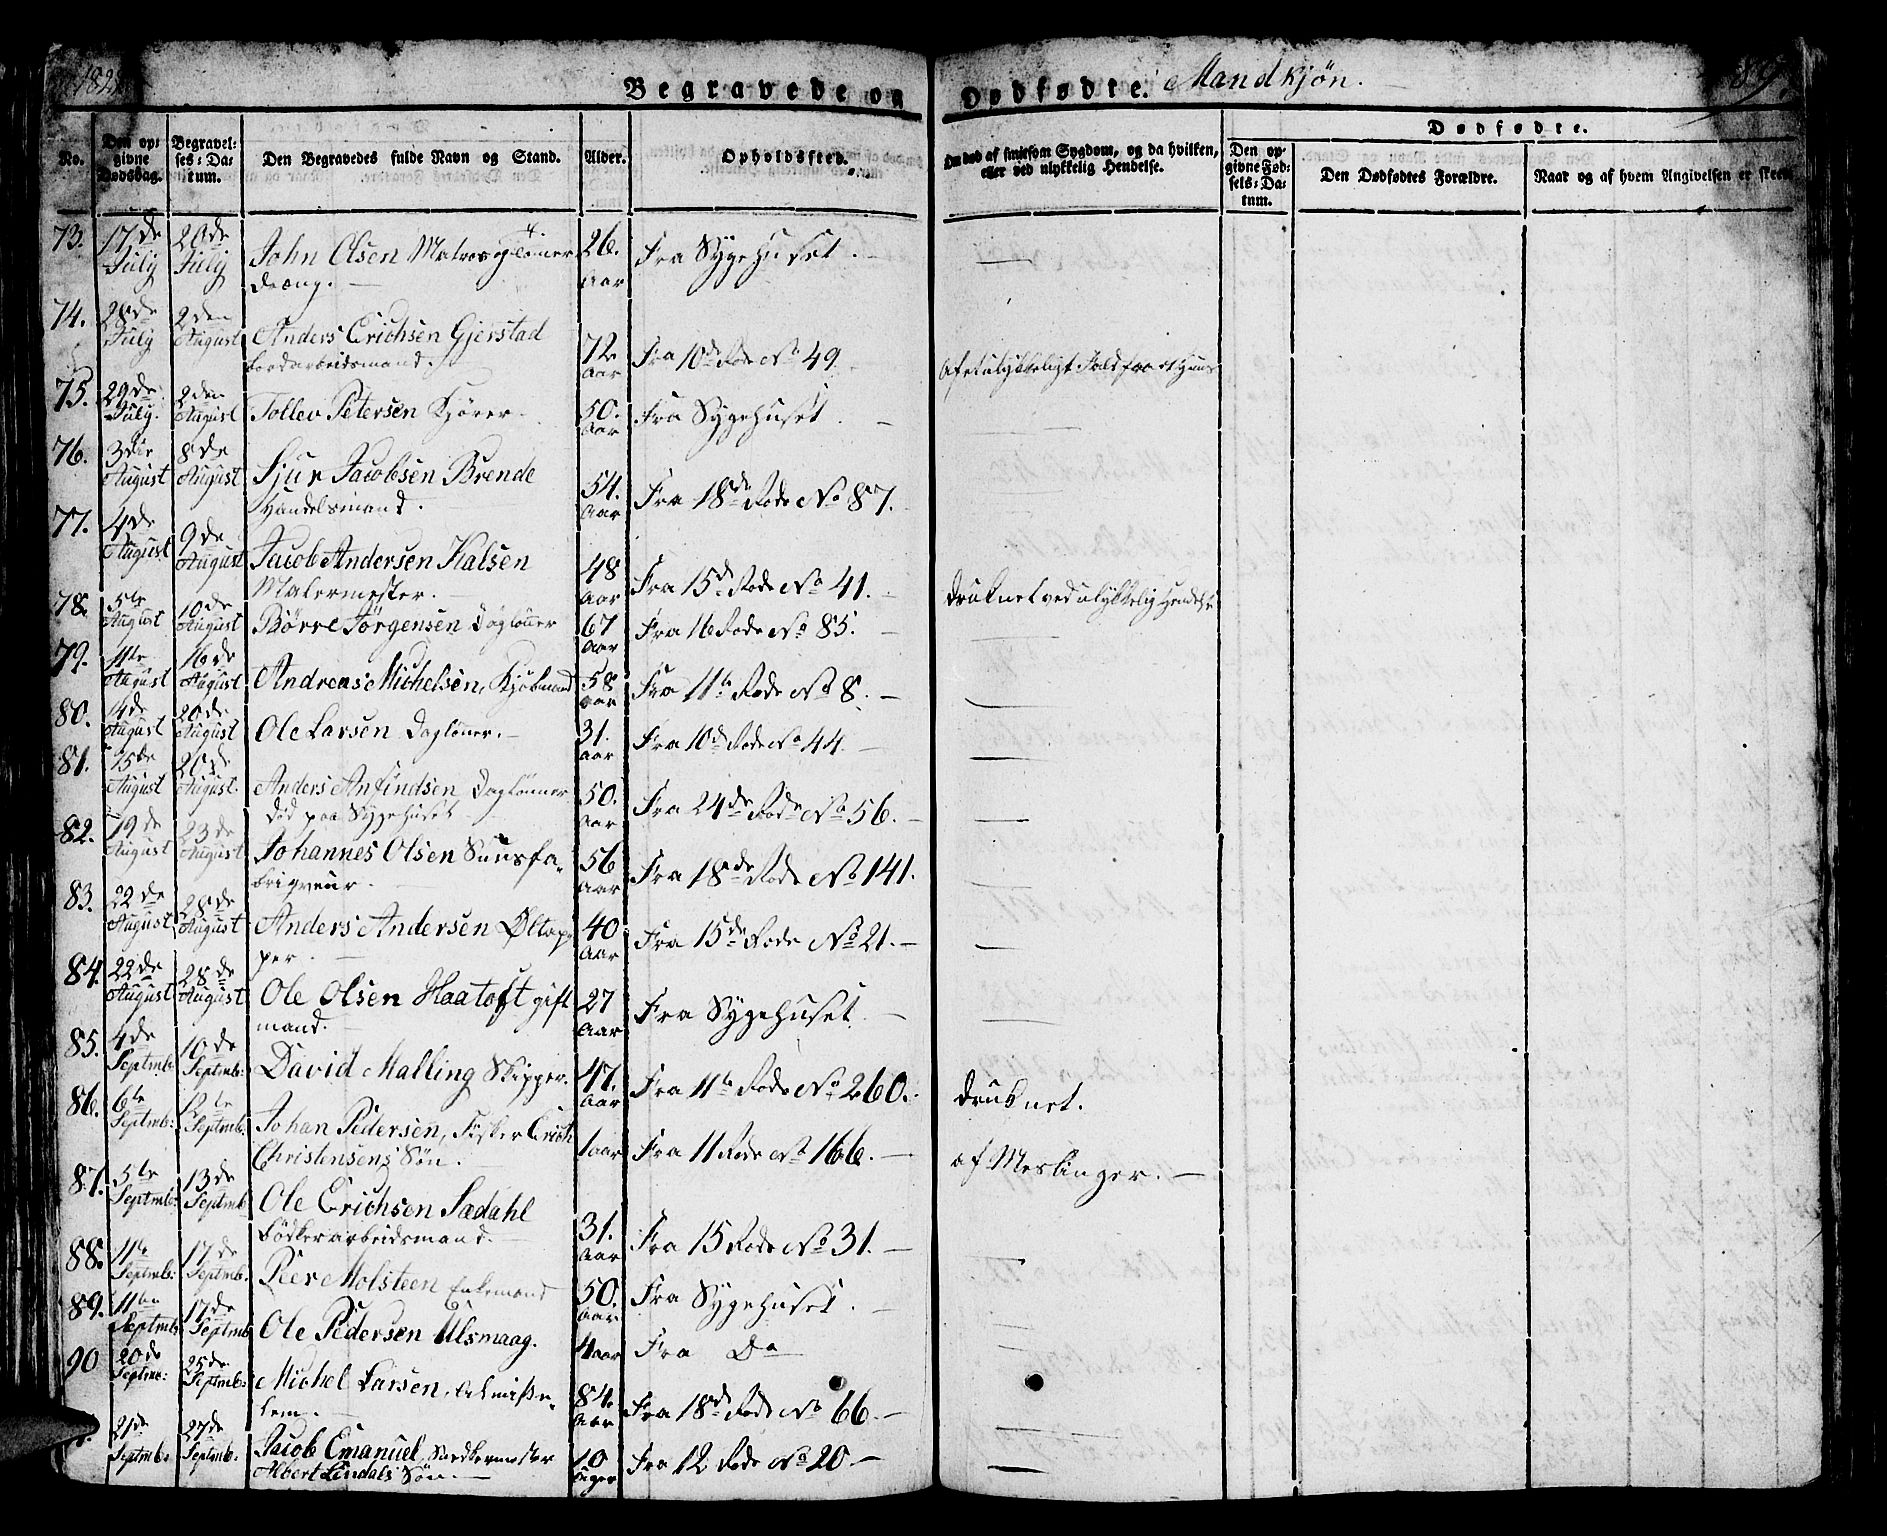 Begravede og Dødfødte. Mandkjøn.
No.
Den opgivne Dødsdag.
Begravelses-Datum.
Den Begravedes fulde Navn og Stand.
Alder.
Opholdssted.
Om død af smitsom Sygdom, og da hvilken, eller ved ulykkelig Hendelse.
Dødfødte.
Den opgivne Fødsels-Datum.
Den Dødfødtes Forældre.
Naar og af hvem Angivelsen er skeet
73. 17de July 20de July John Olsen Matros og Tømer 26. Aar Fra Sygehuset. —
dræng. —
74. 28de July 2den August Anders Erichsen Gjerstad 72 Aar Fra 10de Rode No 49. Af et ulykkeligt Fald fra et Huus
Bordarbeidsmand.
75. 29de July. 2den August Tollev Petersen Kjører. 50. Aar Fra Sygehuset. —
76. 3die August 8de August Sjur Jacobsen Brende 54. Aar Fra 18de Rode No 87.
Handelsmand. —
77. 4de August 9de August Jacob Andersen Kalsen 48 Aar Fra 15de Rode No 41. — druknet ved ulykkelig Hendelse
Malermester. —
78. 5te August 10de August Børre Jørgensen Dagløner 67 Aar Fra 16 Rode No 85. —
79. 11te August 16de August Andreas Michelsen, Kjøbmand 58 Aar Fra 11te Rode No 8. —
80. 14de August 20de August Ole Larsen Dagløner. — 31. Aar Fra 10de Rode No 44. —
81. 15de August 20de August. Anders Anfindsen Dagløner 50. Aar Fra 24de Rode No 56. —
død paa Sygehuset
82. 19de August 23de August Johannes Olsen Snusfa- 56 Aar Fra 18de Rode No 141.
briqveur. —
83. 22de August 28de August Anders Andersen Øltap- 40 Aar Fra 15de Rode No 21. —
per. —
84. 22de August 28de August Ole Olsen Haatoft gift 27 Aar Fra Sygehuset. —
mand. —
85. 4de Septmb: 10de Septmb: David Malling Skipper. 47. Aar Fra 11te Rode No 260. druknet.
86. 6te Septmb: 12te Septmb. Johan Pedersen, Fisker Erich 1 aar Fra 11 Rode No 166. — af Meslinger. —
Christensens Søn.
87. 5te Septmb: 13de Septmb Ole Erichsen Sædahl 31. Aar Fra 15 Rode No 31. —
Bødkerarbeidsmand. —
88. 11te Septmb: 17de Septmb. Peer Molsteen Enkemand 50. Aar Fra Sygehuset. —
89. 11te Septmb: 17de Septmb Ole Pedersen Ulsmaag. 4 aar Fra Do
90 20de Septmb: 25de Septmb: Michel Larsen, Almisse- 84. Aar Fra 18de Rode No 66. —
lem. —
21de Septmb: 27de Septmb. Jacob Emanuel, 10 Uger Fra 12 Rode No 20. —
Albert Lindals Søn. —